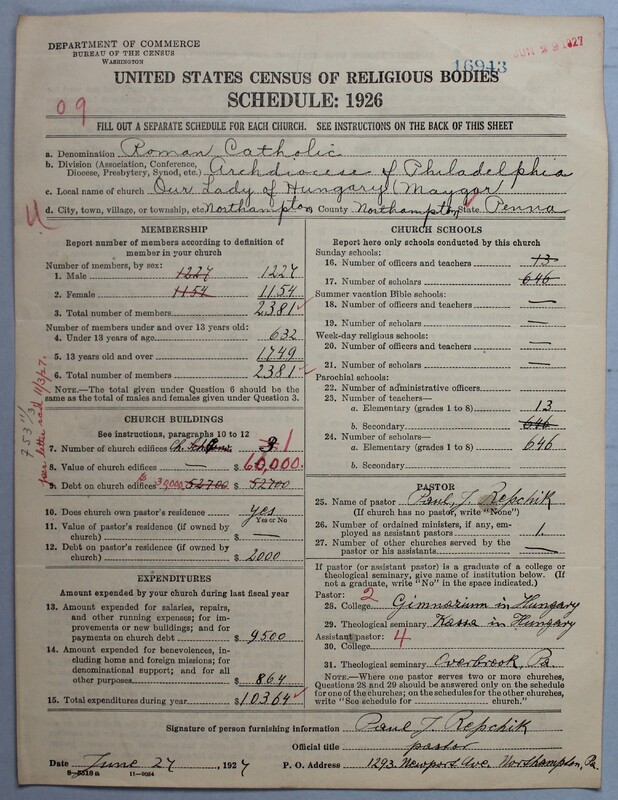 DEPARTMENT OF COMMERCE
BUREAU OF THE CENSUS
WASHINGTON
16943
JUN 29 1927
UNITED STATES CENSUS OF RELIGIOUS BODIES
SCHEDULE: 1926
09
FILL OUT A SEPARATE SCHEDULE FOR EACH CHURCH. SEE INSTRUCTIONS ON THE BACK OF THIS SHEET
a. Denomination Roman Catholic
b. Division (Association, Conference, Diocese, Presbytery, Synod, etc.) Archdiocese of Philadelphia
c. Local name of church Our Lady of Hungary (Maygar
d. City, town, village, or township, etc. Northampton County Northampton State Penna
MEMBERSHIP
Report number of members according to definition of member in your church
Number of members, by sex:
1. Male 1227 1227
2. Female 1154 1154
3. Total number of members 2381
Number of members under and over 13 years old:
4. Under 13 years of age 632
5. 13 years old and over 1749
6. Total number of members 2381
NOTE.—The total given under Question 6 should be the same as the total of males and females given under Question 3.
per letter rec'd 11/3/27.
CHURCH BUILDINGS
See instructions, paragraphs 10 to 12
7. Number of church edifices 1
8. Value of church edifices — $ 60,000.
9. Debt on church edifices 52700 $ 52700
10. Does church own pastor's residence yes
Yes or No
11. Value of pastor's residence (if owned by church) $ —
12. Debt on pastor's residence (if owned by church) $ 2000
EXPENDITURES
Amount expended by your church during last fiscal year
13. Amount expended for salaries, repairs, and other running expenses; for improvements or new buildings; and for payments on church debt $ 9500
14. Amount expended for benevolences, including home and foreign missions; for denominational support; and for all other purposes $ 864
15. Total expenditures during year $ 10364
CHURCH SCHOOLS
Report here only schools conducted by this church
Sunday schools:
16. Number of officers and teachers 13
17. Number of scholars 646
Summer vacation Bible schools:
18. Number of officers and teachers —
19. Number of scholars —
Week-day religious schools:
20. Number of officers and teachers —
21. Number of scholars —
Parochial schools:
22. Number of administrative officers
23. Number of teachers—
a. Elementary (grades 1 to 8) 13
b. Secondary 646
24. Number of scholars—
a. Elementary (grades 1 to 8) 646
b. Secondary
PASTOR
25. Name of pastor Paul J. Repchik
(If church has no pastor, write "None")
26. Number of ordained ministers, if any, employed as assistant pastors 1.
27. Number of other churches served by the pastor or his assistants —
If pastor (or assistant pastor) is a graduate of a college or theological seminary, give name of institution below. (If not a graduate, write "No" in the space indicated.)
Pastor: 2
28. College Gimnazium in Hungary
29. Theological seminary Kassa in Hungary
Assistant pastor: 4
30. College
31. Theological seminary Overbrook, Pa.
NOTE.—Where one pastor serves two or more churches, Questions 28 and 29 should be answered only on the schedule for one of the churches; on the schedules for the other churches, write "See schedule for church."
Signature of person furnishing information Paul J. Repchik
Official title pastor
Date June 27, 1927 P. O. Address 1293. Newport Ave. Northampton, Pa.
8-5518a 11-9034